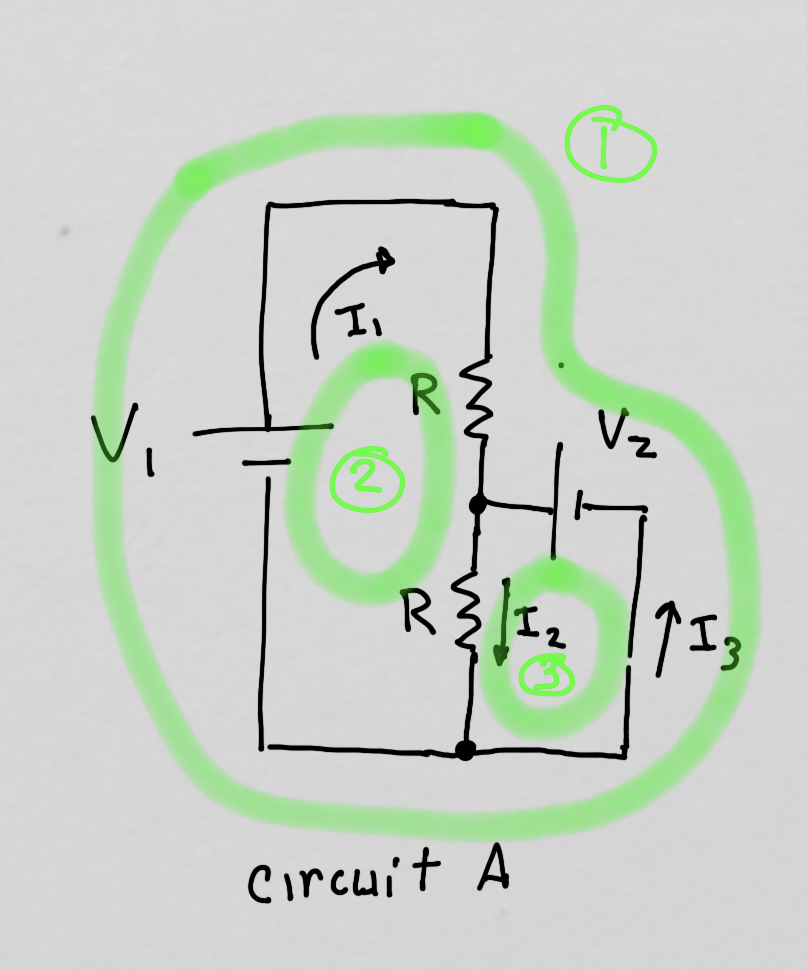 1
I1
R
V1
V2
2
R
I2
I3
3
Circuit A